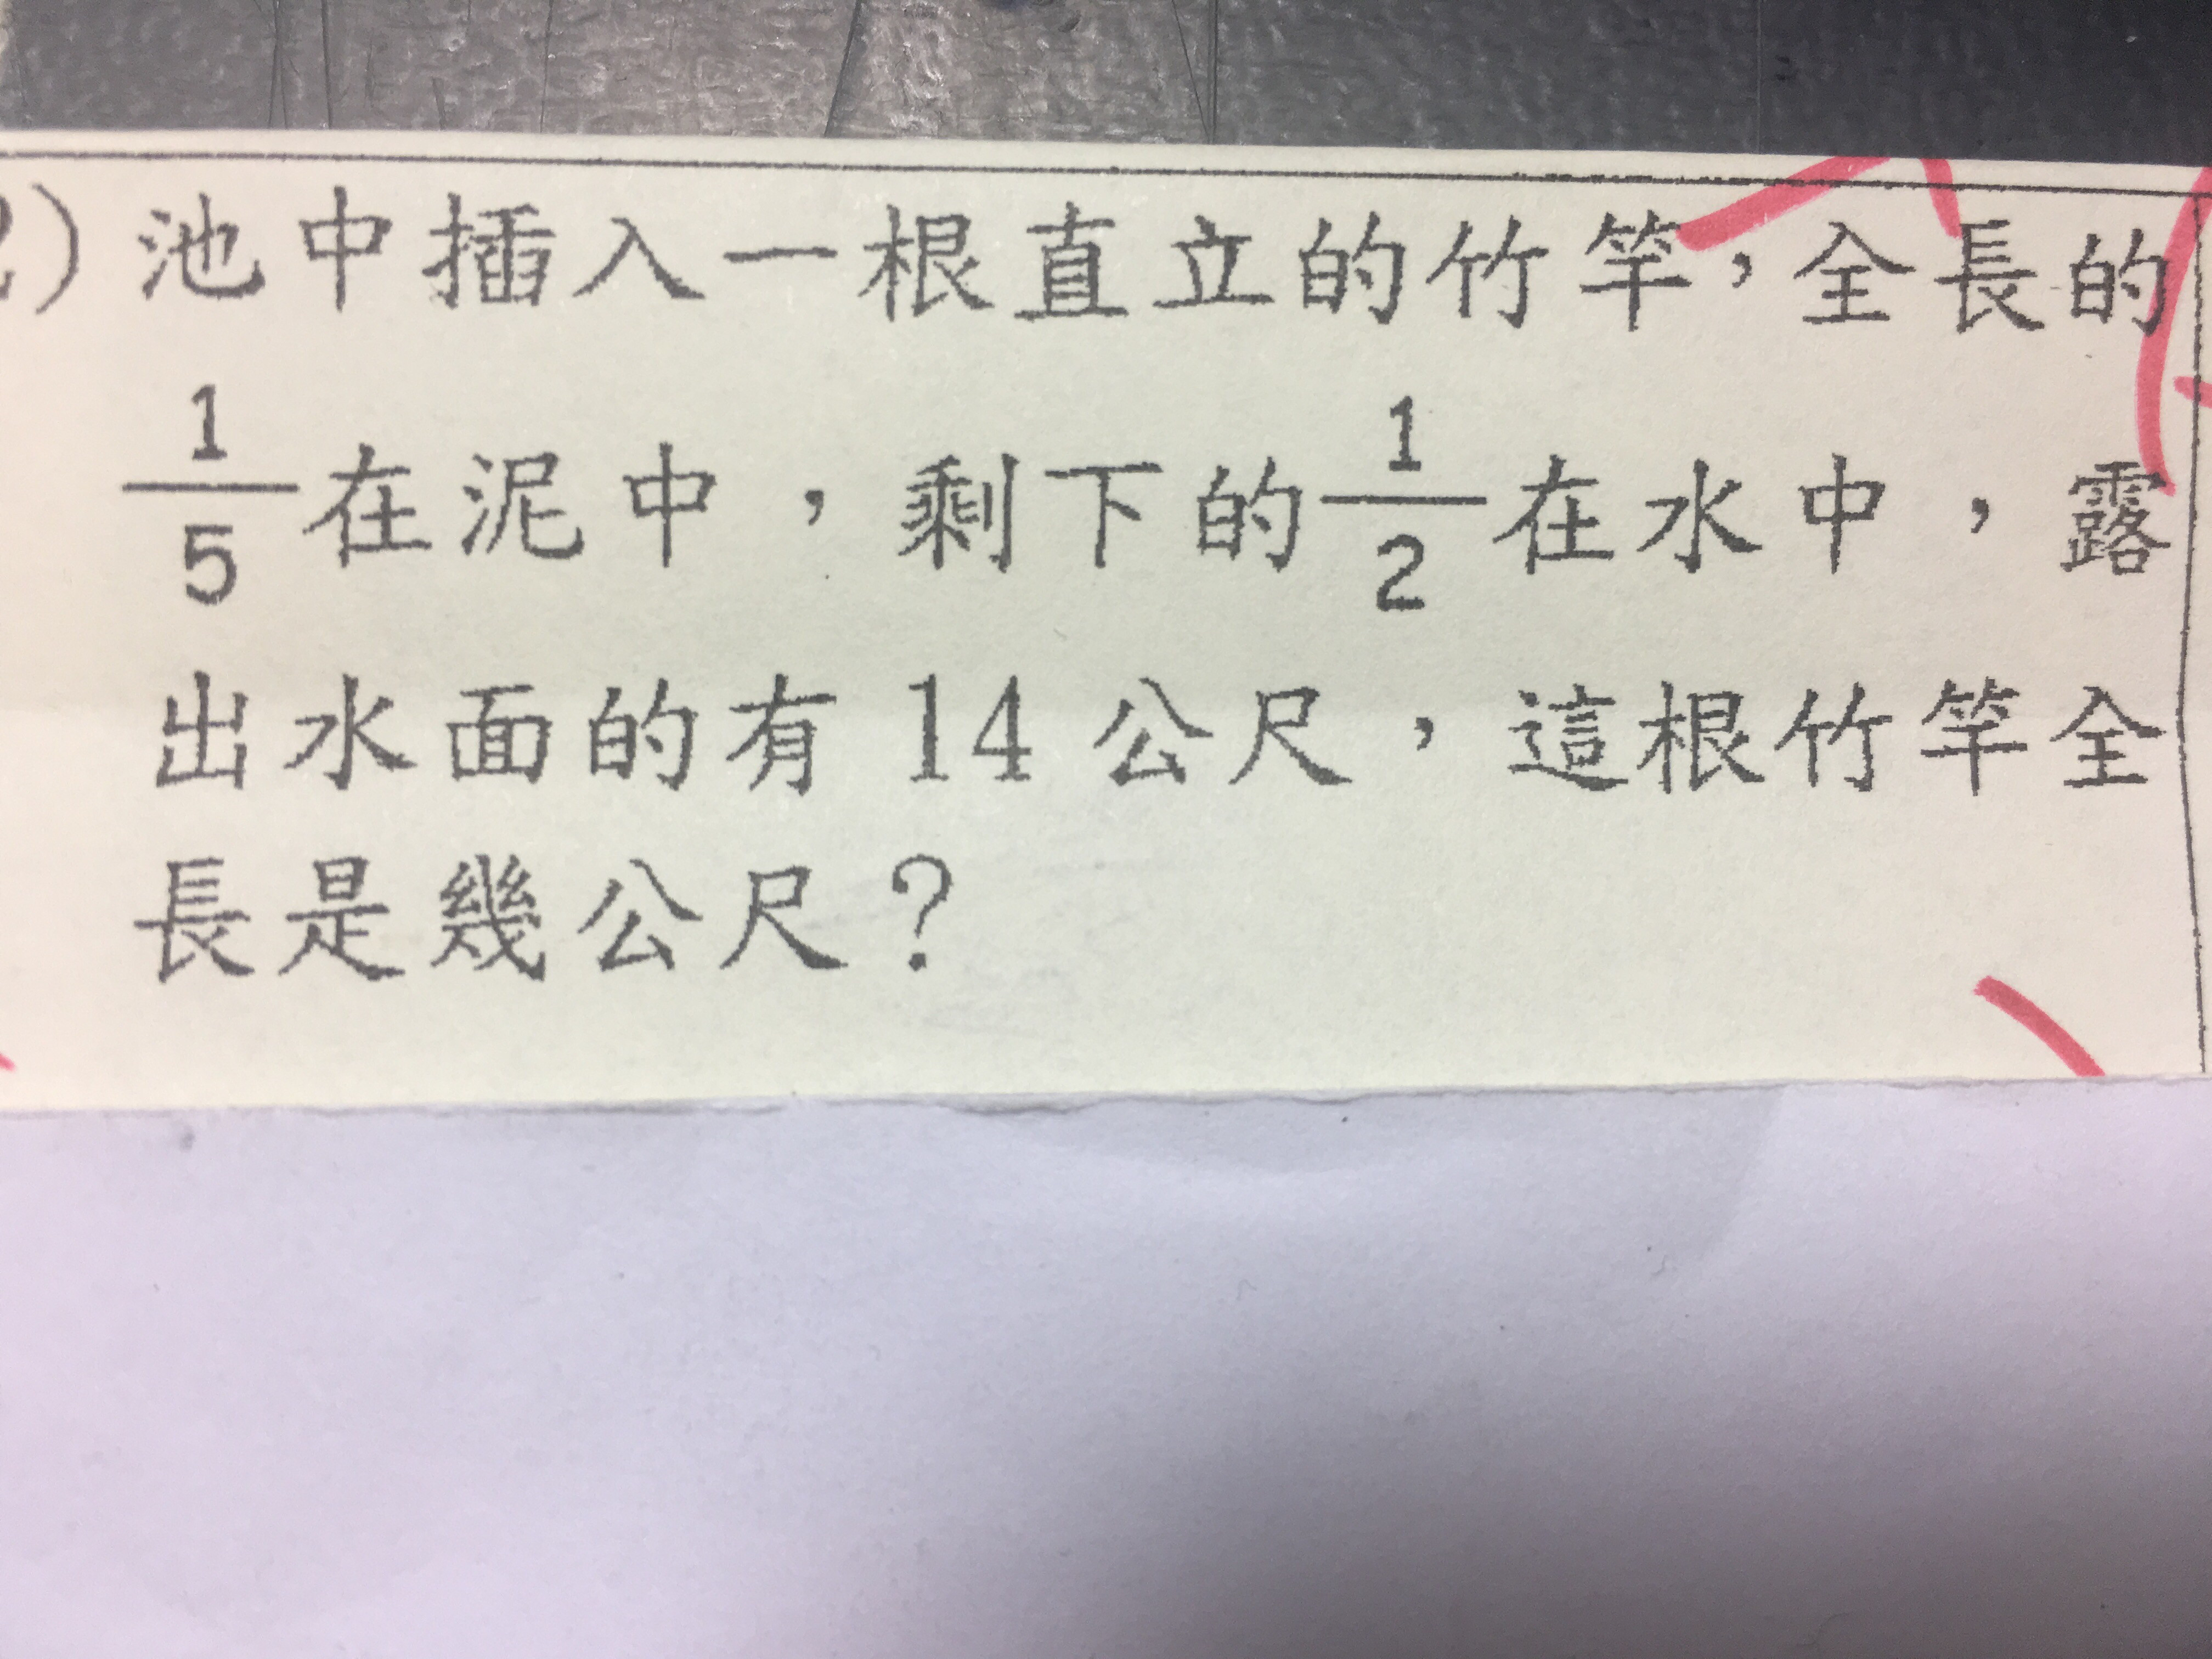 2) 池中插入一根直立的竹竿，全長的
1/5 在泥中，剩下的 1/2 在水中，露
出水面的有 14 公尺，這根竹竿全
長是幾公尺？